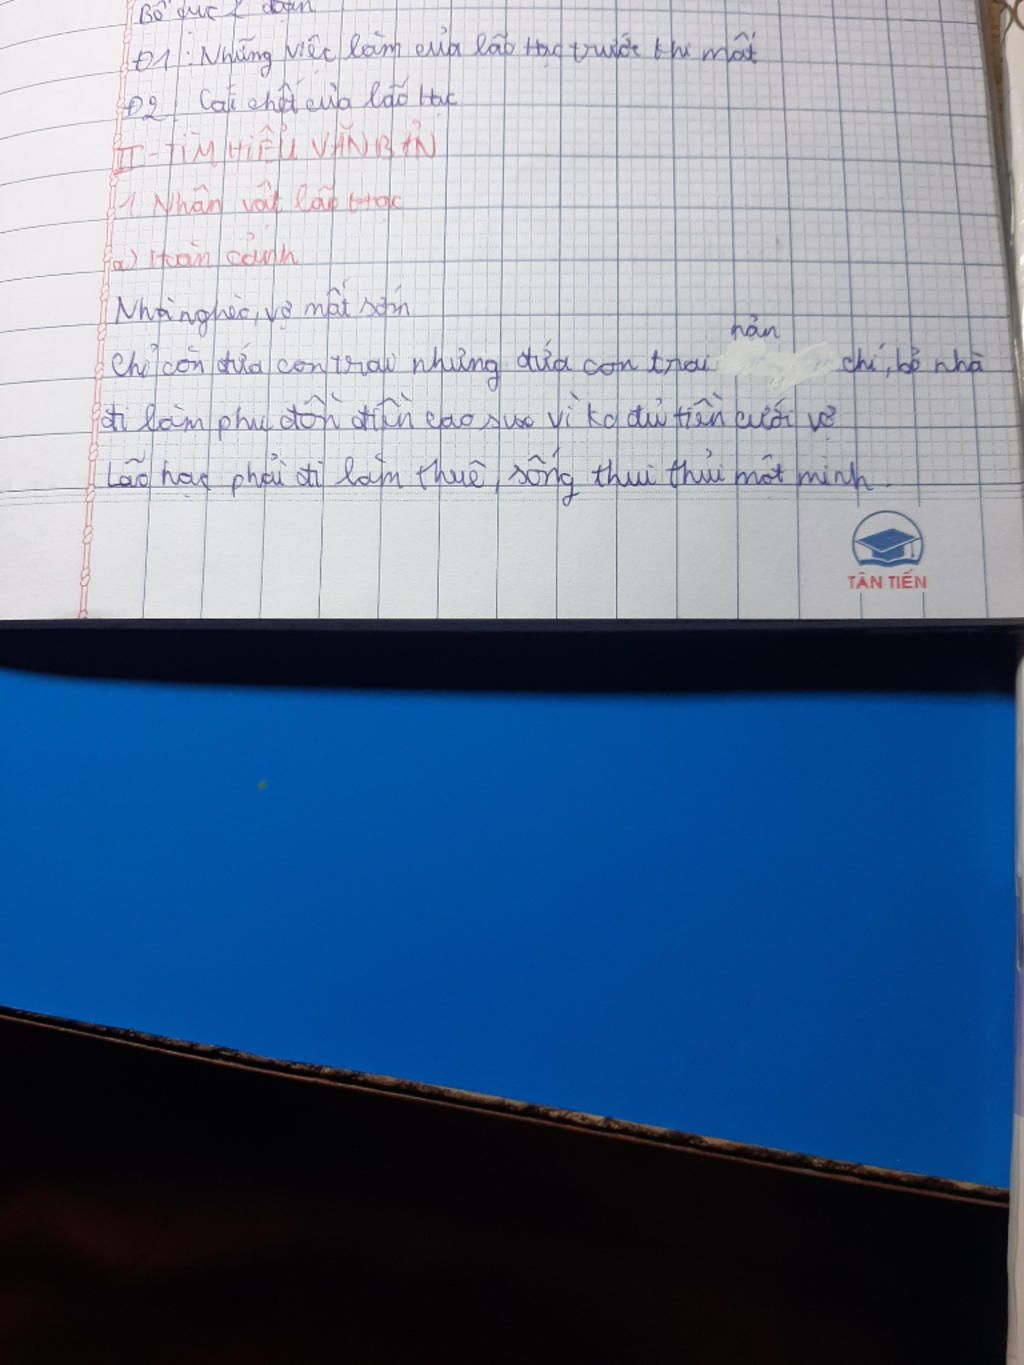 Bố cục 2 đoạn
Đ1: Những việc làm của lão Hạc trước khi mất
Đ2 Cái chết của lão Hạc
II-TÌM HIỂU VĂN BẢN
1 Nhân vật lão Hạc
a) Hoàn cảnh
Nhà nghèo, vợ mất sớm
Chỉ còn đứa con trai nhưng đứa con trai nản chí, bỏ nhà
đi làm phu đồn điền cao suc vì ko đủ tiền cưới vợ
Lão hạc phải đi làm thuê, sống thui thủi một mình.
TÂN TIẾN